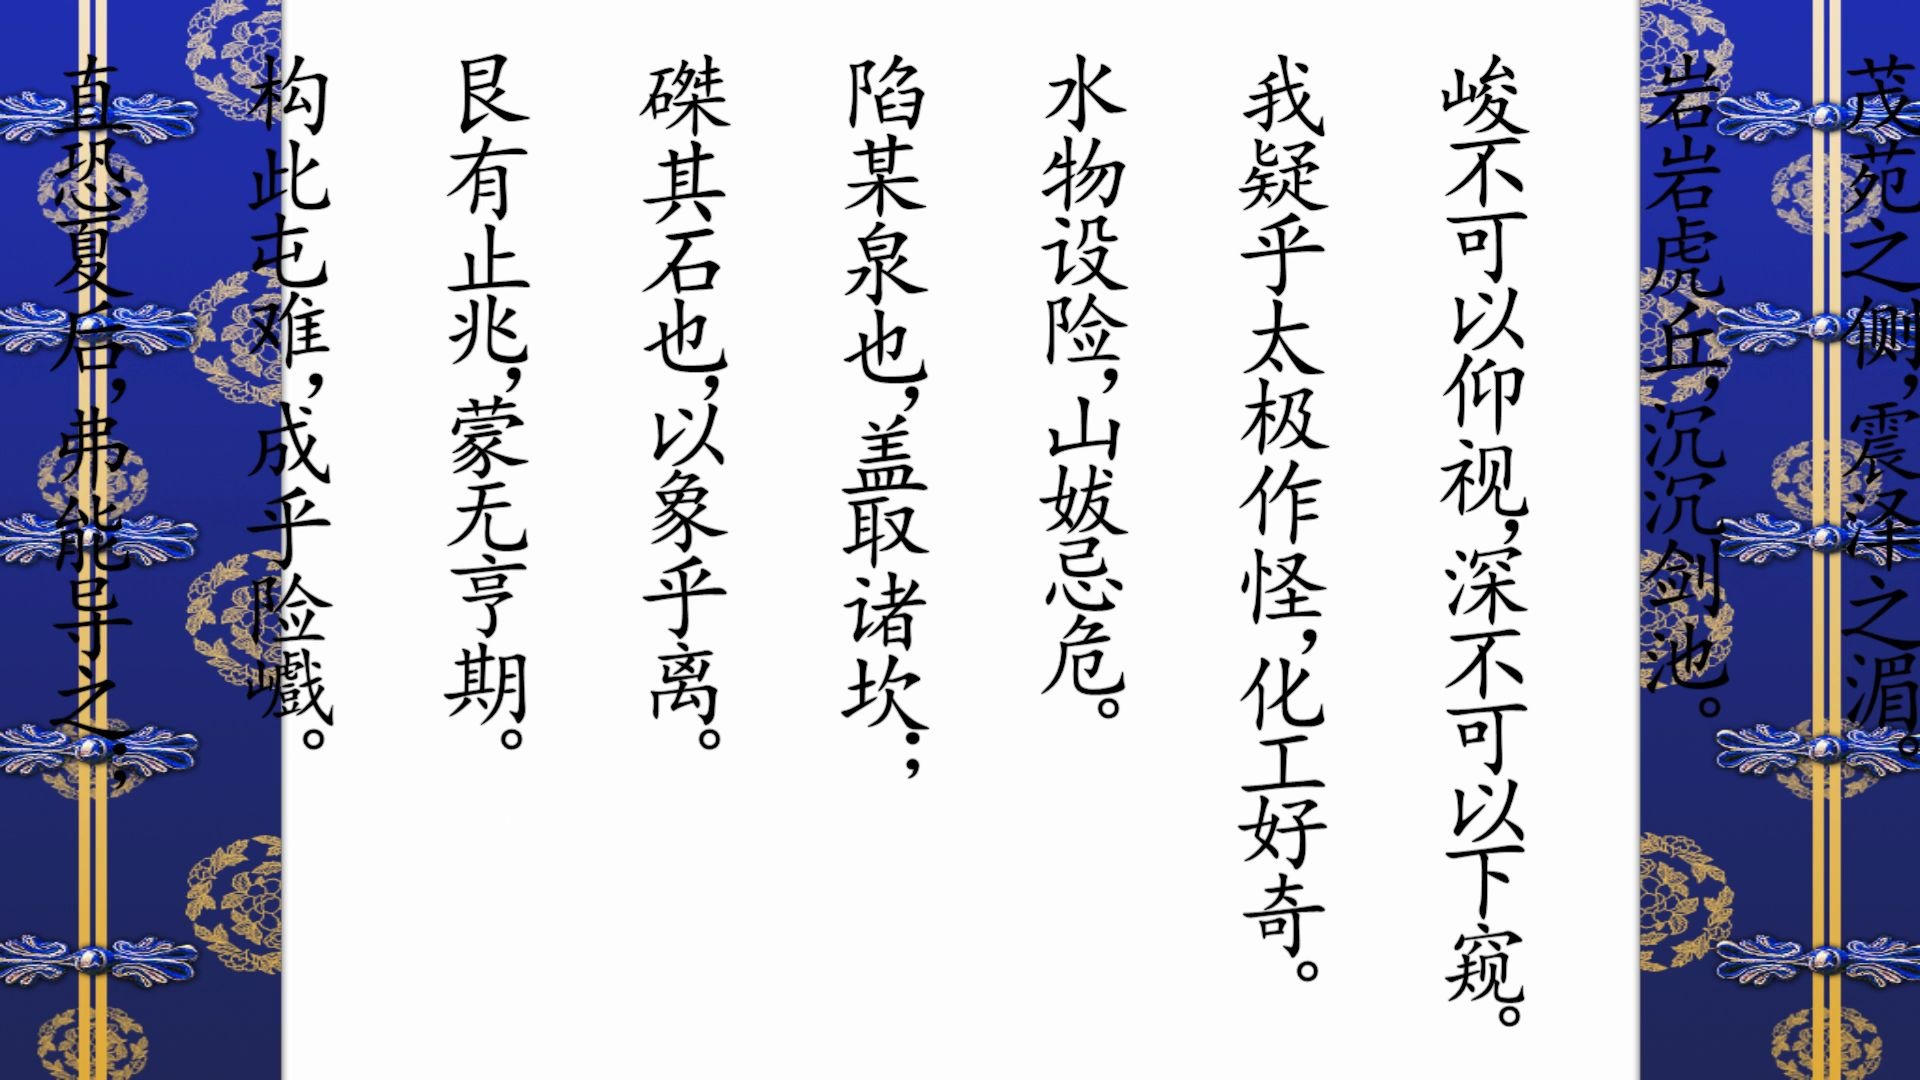 茂苑之侧，震泽之湄。
岩岩虎丘，沉沉剑池。
峻不可以仰视，深不可以下窥。
我疑乎太极作怪，化工好奇。
水物设险，山妭忌危。
陷某泉也，盖取诸坎；
磔其石也，以象乎离。
艮有止兆，蒙无亨期。
构此屯难，成乎险巇。
直恐夏后，弗能导之；